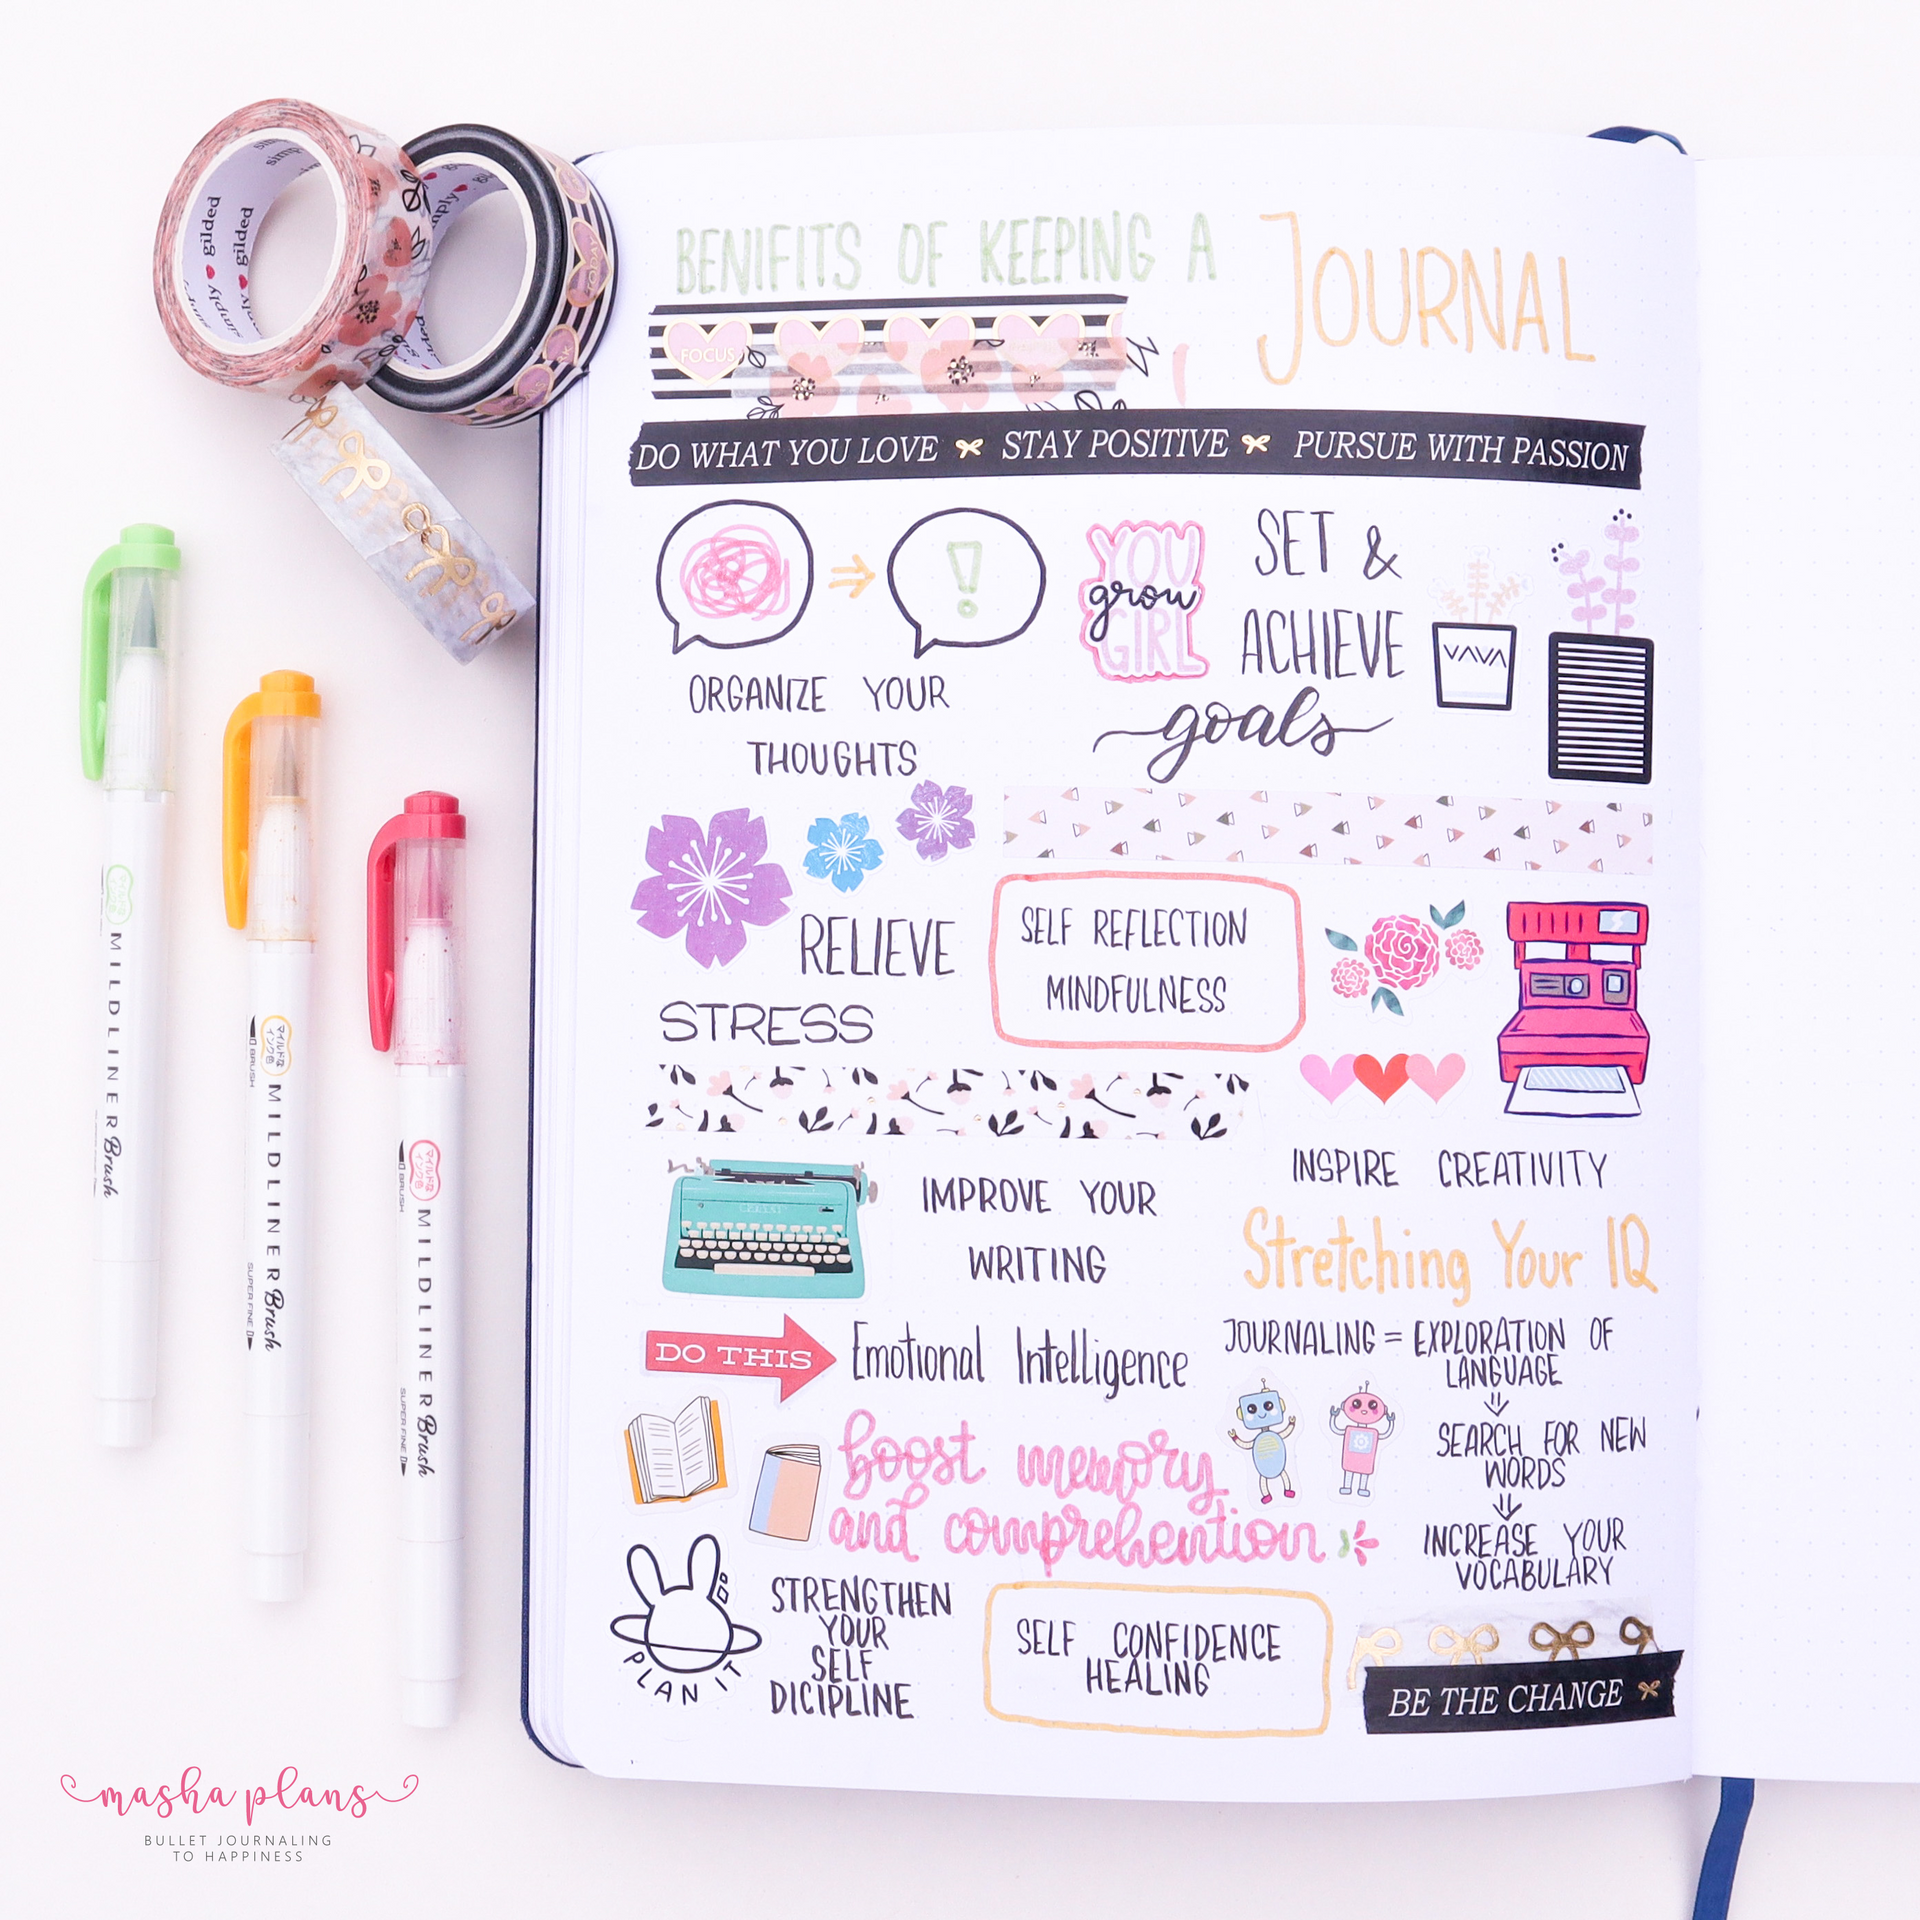 BENIFITS OF KEEPING A
JOURNAL
FOCUS
DO WHAT YOU LOVE STAY POSITIVE PURSUE WITH PASSION
ORGANIZE YOUR
THOUGHTS
YOU
grow
GIRL
SET &
ACHIEVE
goals
RELIEVE
STRESS
SELF REFLECTION
MINDFULNESS
INSPIRE CREATIVITY
IMPROVE YOUR
WRITING
Stretching Your IQ
DO THIS
Emotional Intelligence
JOURNALING = EXPLORATION OF
LANGUAGE
SEARCH FOR NEW
WORDS
INCREASE YOUR
VOCABULARY
boost memory
and comprehention
PLAN IT
STRENGTHEN
YOUR
SELF
DICIPLINE
SELF CONFIDENCE
HEALING
BE THE CHANGE
simply gilded
simply gilded
TODAY
MILDLINER Brush
マイルドな
インク色
BRUSH
MILDLINER Brush
SUPER FINE
マイルドな
インク色
BRUSH
MILDLINER Brush
SUPER FINE
masha plans
BULLET JOURNALING
TO HAPPINESS